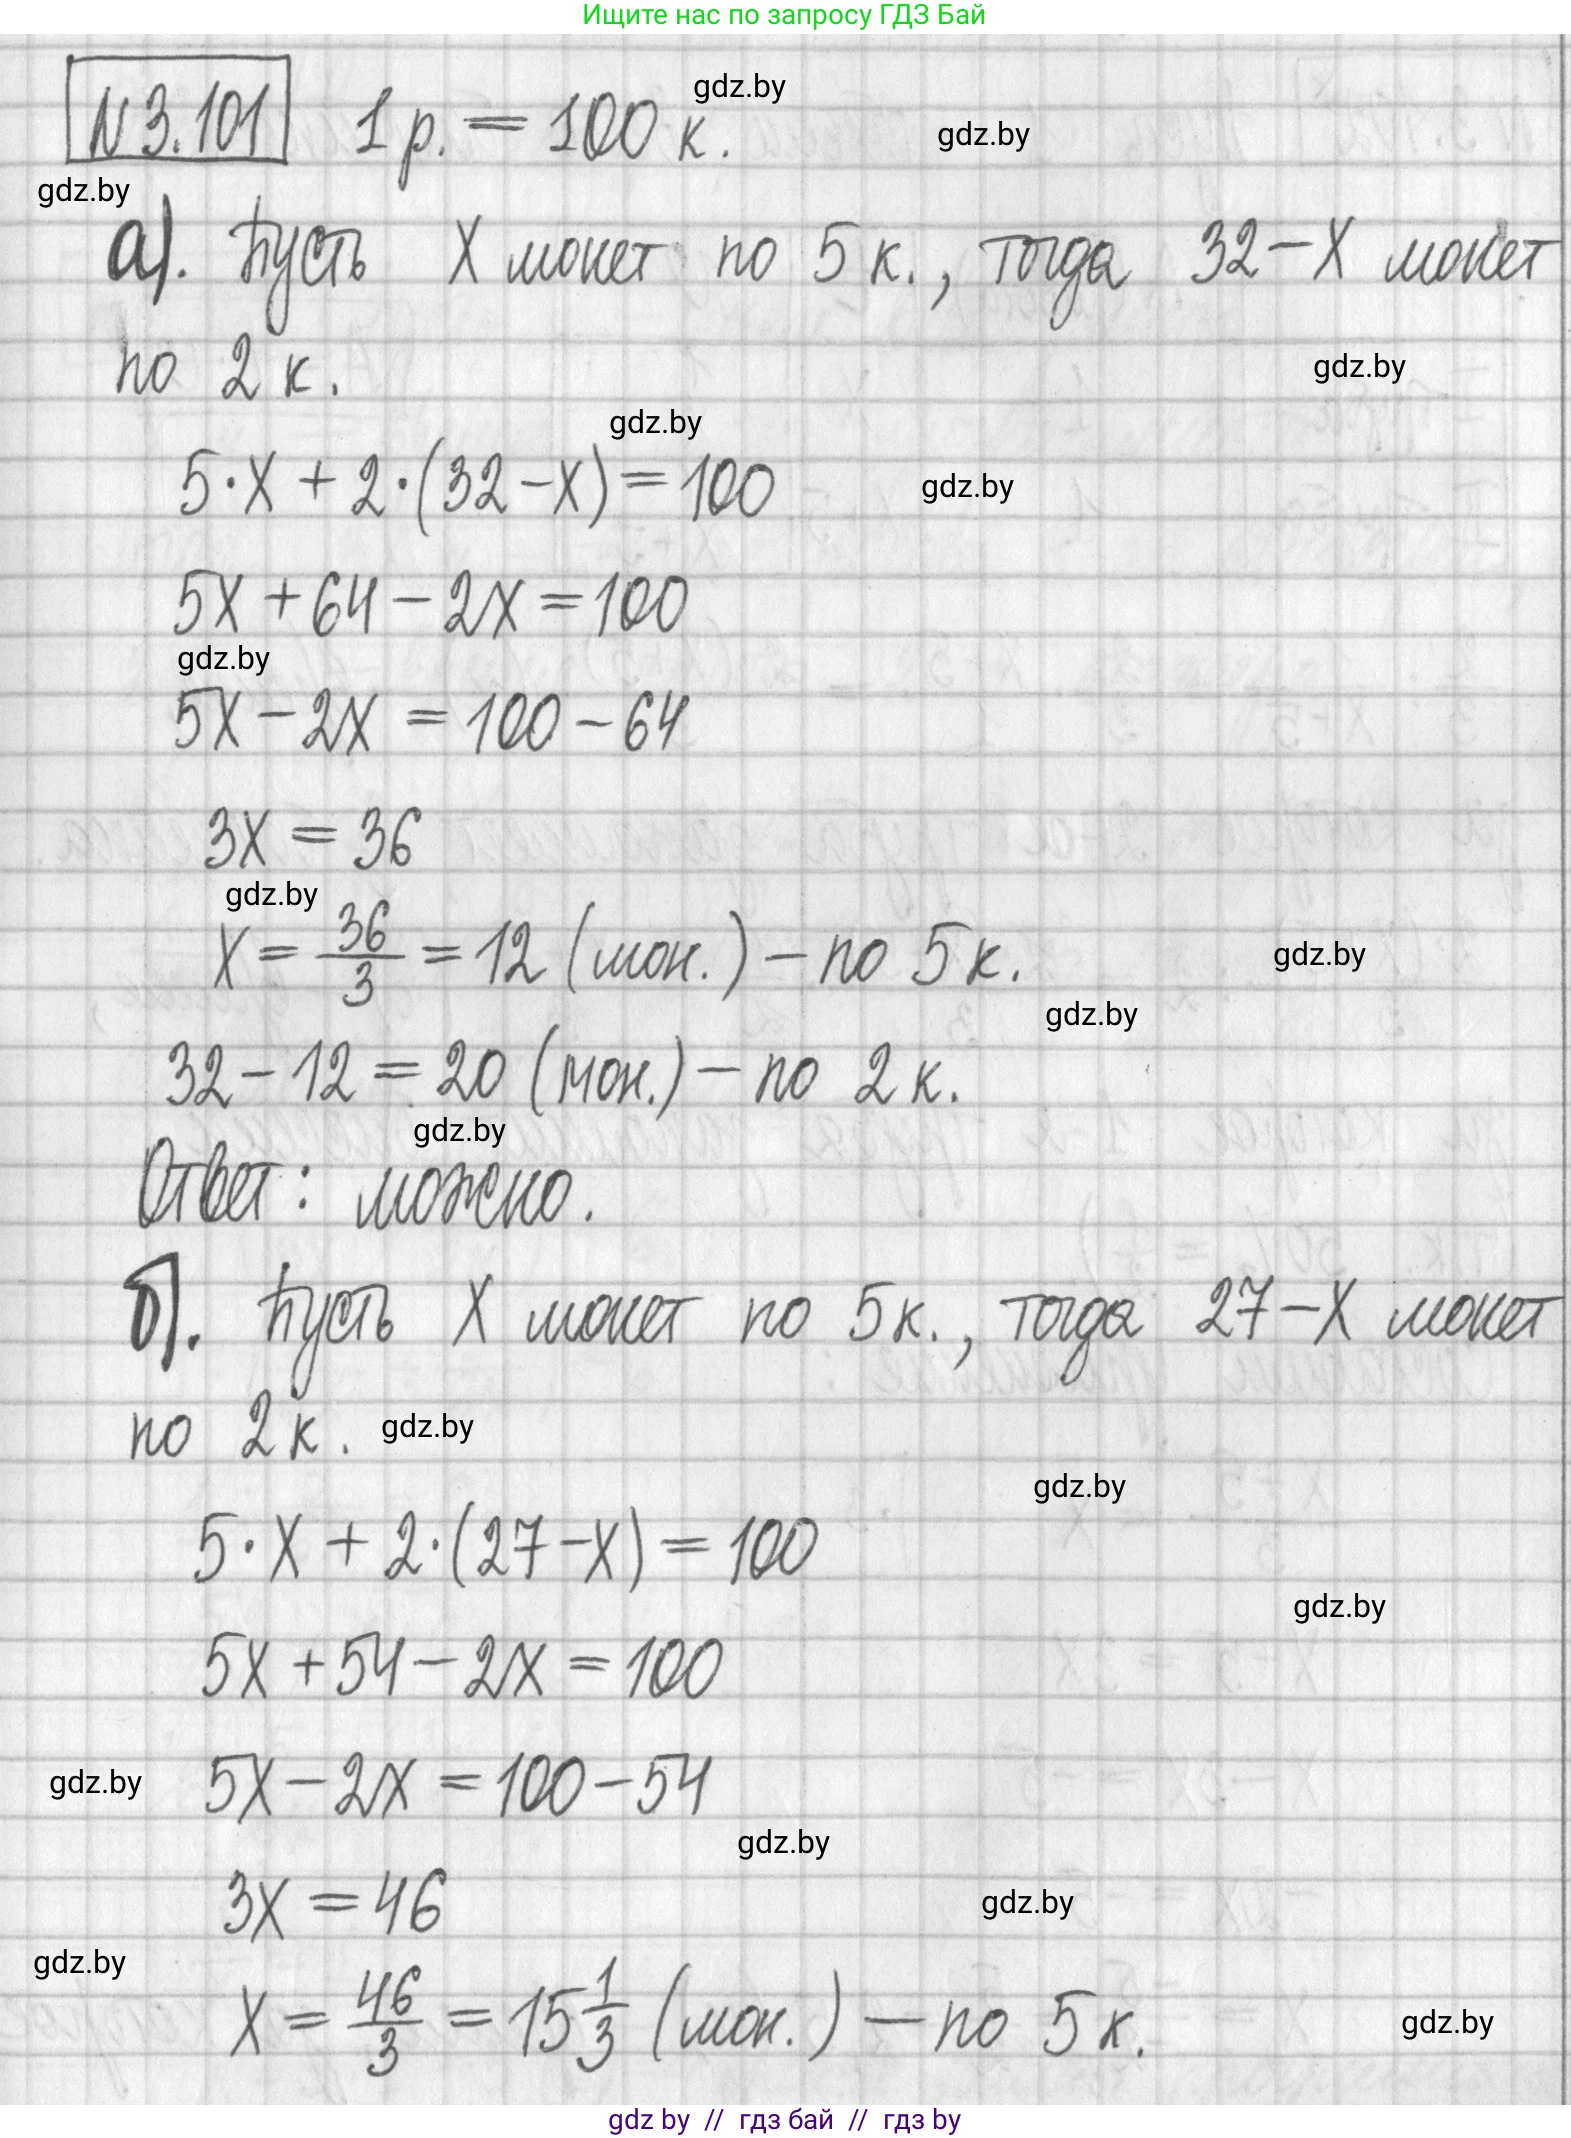 Ищите нас по запросу ГДЗ Бай
N 3.101 1 р. = 100 к.
gdz.by
gdz.by
gdz.by
а). Пусть X монет по 5 к., тогда 32 - X монет
по 2 к.
gdz.by
gdz.by
5·X + 2·(32-X) = 100
gdz.by
5X + 64 - 2X = 100
gdz.by
5X - 2X = 100 - 64
3X = 36
gdz.by
X = 36/3 = 12 (мон.) - по 5 к.
gdz.by
gdz.by
32 - 12 = 20 (мон.) - по 2 к.
gdz.by
Ответ: можно.
б). Пусть X монет по 5 к., тогда 27 - X монет
по 2 к.
gdz.by
gdz.by
5·X + 2·(27-X) = 100
gdz.by
5X + 54 - 2X = 100
gdz.by
5X - 2X = 100 - 54
gdz.by
3X = 46
gdz.by
gdz.by
X = 46/3 = 15 1/3 (мон.) - по 5 к.
gdz.by
gdz by // гдз бай // гдз by